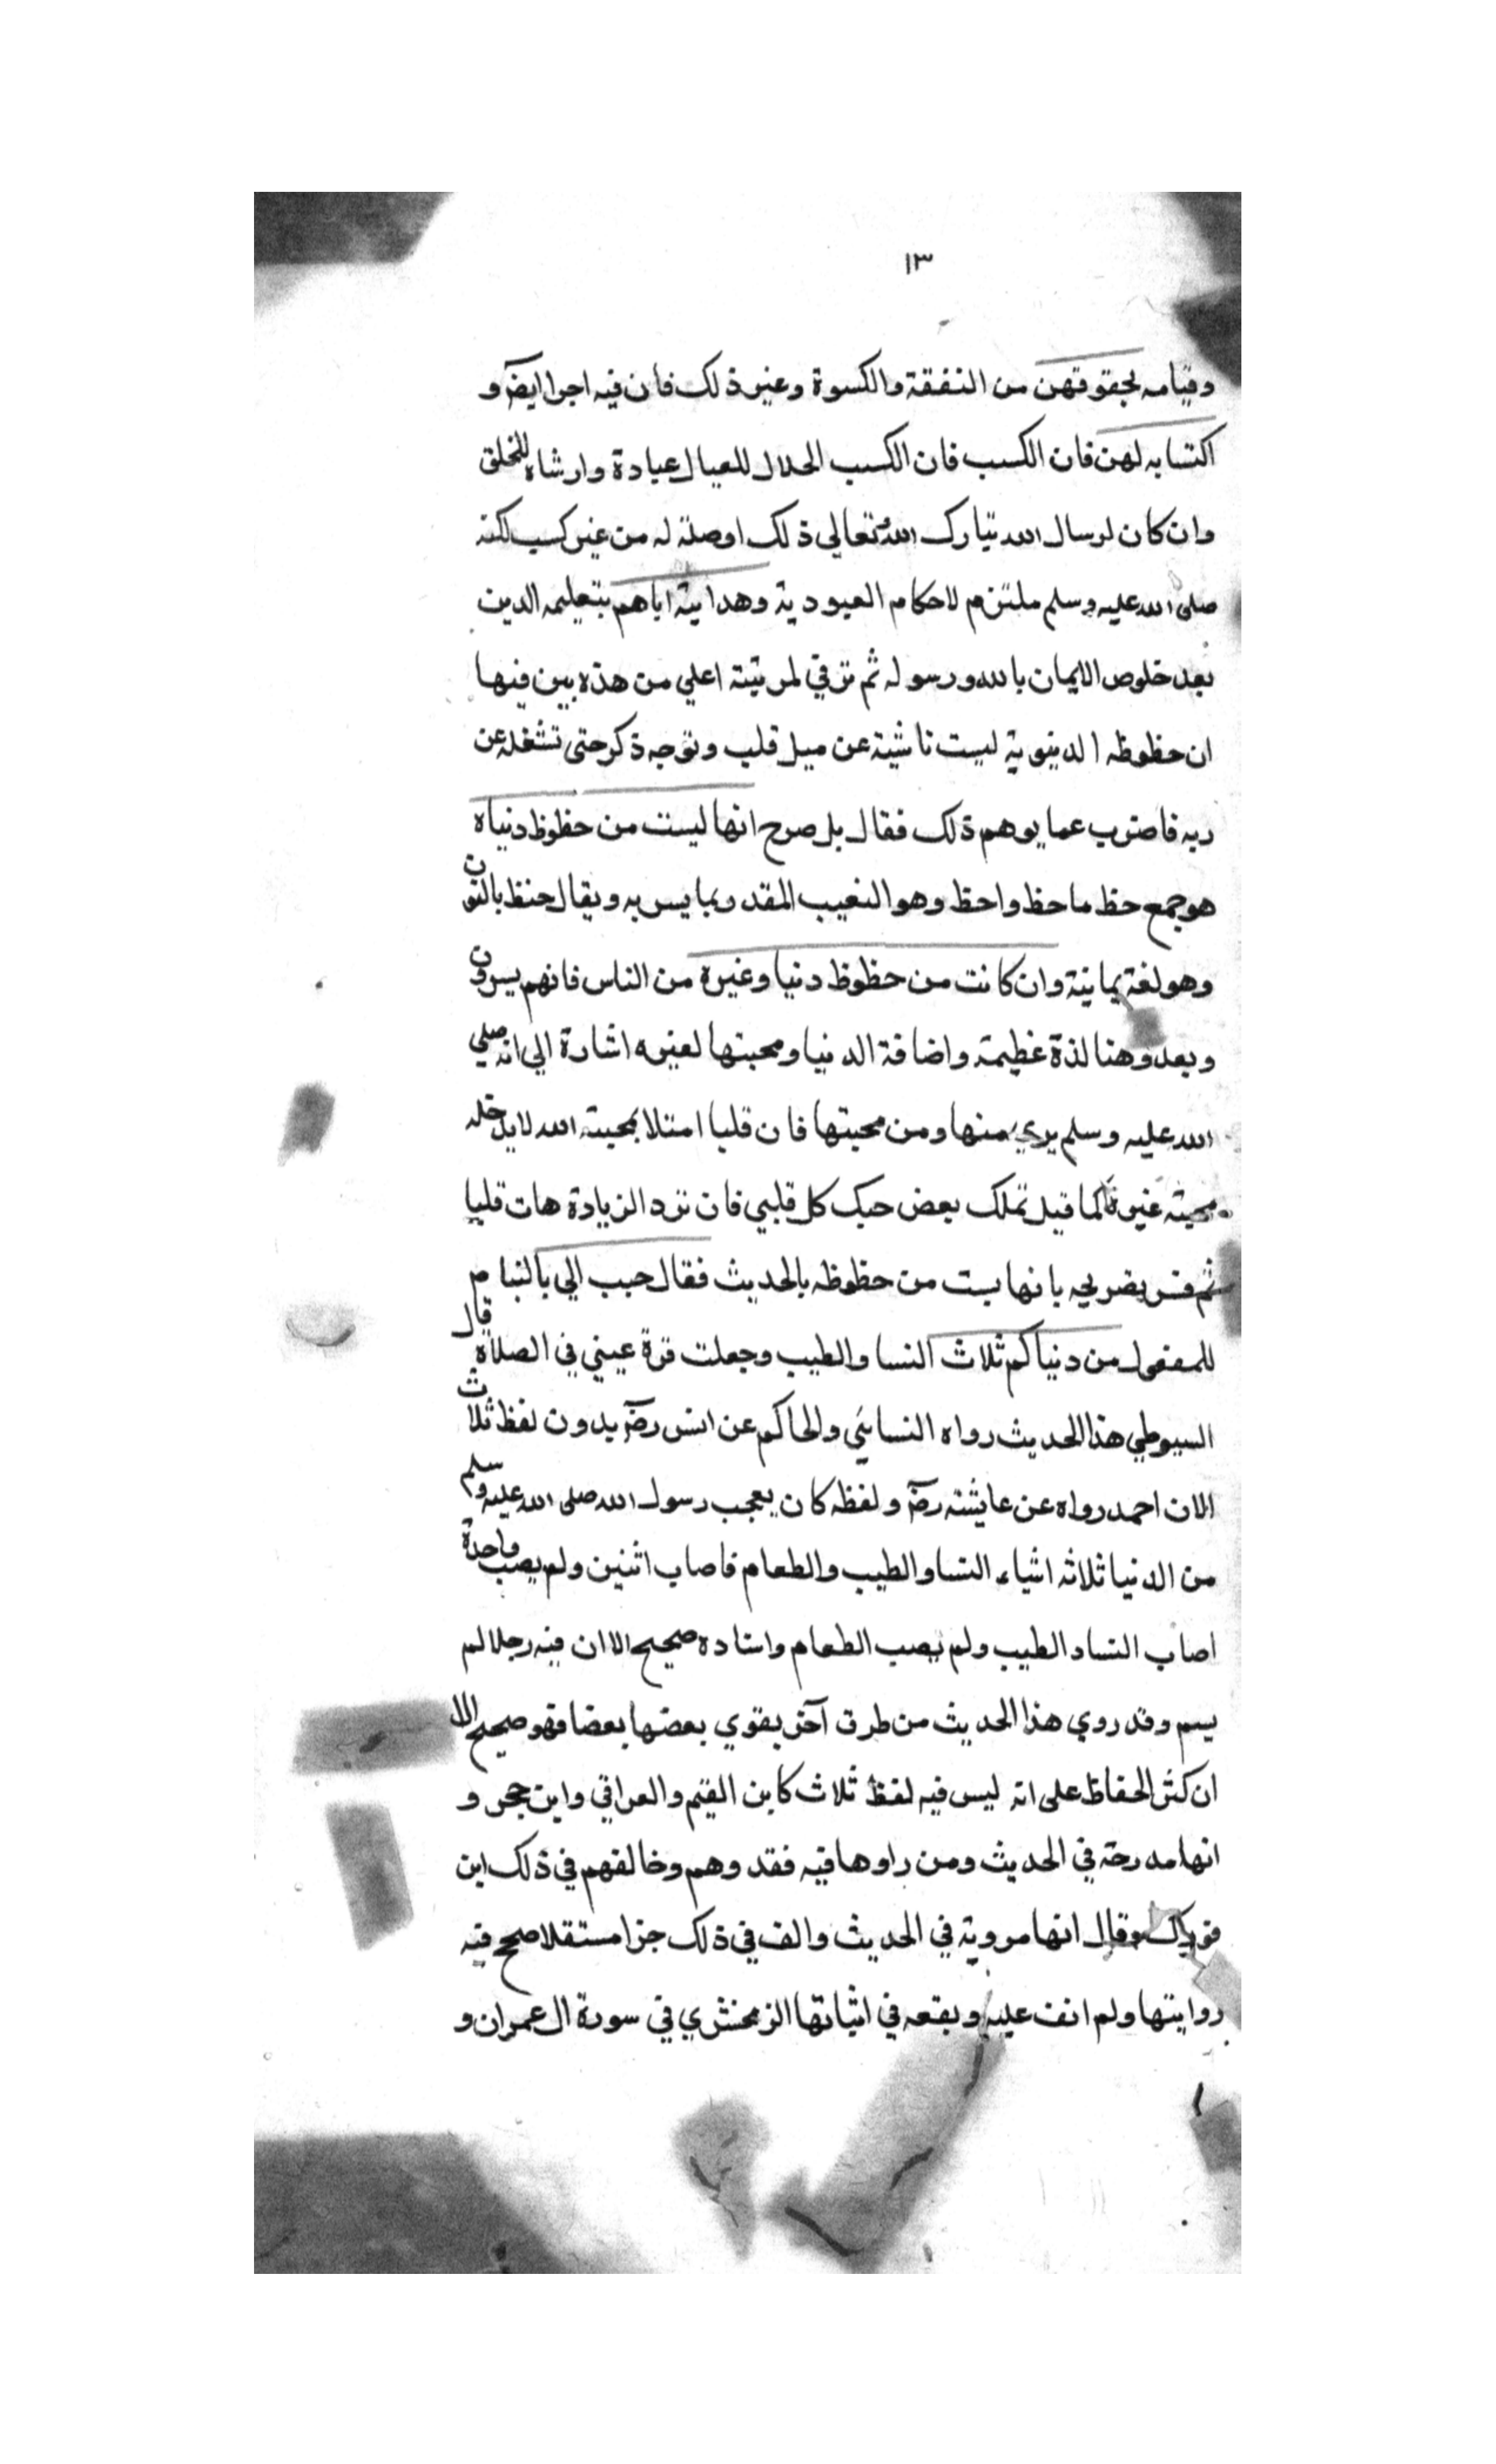 ١٣
وقيامه بحقوقهن من النفقة والكسوة وغير ذلك فان فيه اجرا ايضا و
اكتسابه لهن فان الكسب فان الكسب الحلال للعيال عبادة وارشاه للخلق
وان كان لوسال الله تبارك الله تعالى ذلك اوصله له من غير كسب لكنه
صلى الله عليه وسلم ملتزم لاحكام العبودية وهدايته اياهم بتعليمه الدين
بعد خلوص الايمان بالله ورسوله ثم ترقي لمرتبة اعلي من هذه بين فيها
ان حظوظه الدينوية ليست ناشية عن ميل قلب وتوجه ذكر حتى تشغله عن
ربه فاضرب عما يوهم ذلك فقال بل صرح انها ليست من حظوظ دنياه
هو جمع حظ ما حظ واحظ وهو النصيب المقدر بما يسر به ويقال حنظ بالنون
وهو لغة يمانية وان كانت من حظوظ دنيا وغيره من الناس فانهم يسرون
وبعدوهنا لذة عظيمة واضافة الدنيا ومحبتها لغيره اشارة الي انه صلي
الله عليه وسلم بري منها ومن محبتها فان قلبا امتلا بمحبة الله لا يدخله
محبة غيره كما قيل تملك بعض حبك كل قلبي فان ترد الزيادة هات قلبا
ثم فسر بصريحه بانها بست من حظوظه بالحديث فقال حبب الي بالنبا م
للمفعول من دنياكم ثلاث النسا والطيب وجعلت قرة عيني في الصلاة قال
السيوطي هذا الحديث رواه النسائي والحاكم عن انس رضه بدون لفظ ثلاث
الا ان احمد رواه عن عايشه رضه ولفظه كان يعجب رسول الله صلى الله عليه وسلم
من الدنيا ثلاثه اشياء النسا والطيب والطعام فاصاب اثنين ولم يصب واحدة
اصاب النسا والطيب ولم يصب الطعام واسناده صحيح الا ان فيه رجلا لم
يسم وقد روي هذا الحديث من طرق آخر يقوي بعضها بعضا فهو صحيح الا
ان كثر الحفاظ على انه ليس فيه لفظ ثلاث كابن القيم والعراقي وابن حجر و
انها مدرجة في الحديث ومن راوها فيه فقد وهم وخالفهم في ذلك ابن
فورك وقال انها مروية في الحديث والف في ذلك جزا مستقلا صحح فيه
روايتها ولم اقف عليه وبقعه في اثباتها الزمخشري في سورة ال عمران و